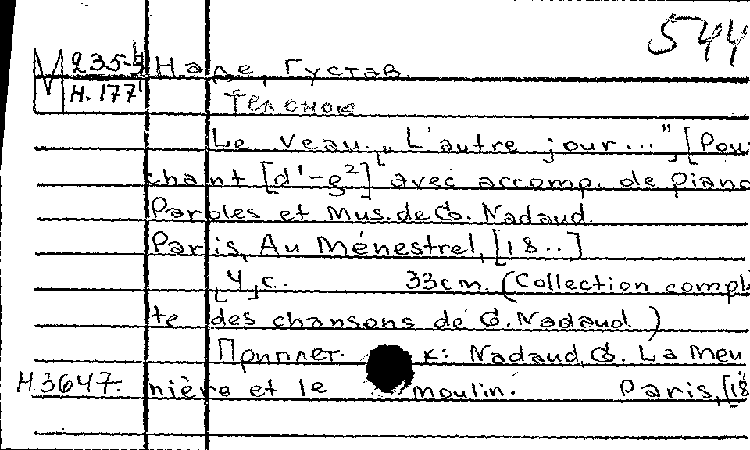 544
М 235-4 Наде, Густав.
Н. 177
Теленок
Le veau. „L'autre jour...", [Pour
chant [d¹-g²] avec accomp. de piano
Paroles et mus. de G. Nadaud.
Paris, Au Ménestrel, [18..]
[4] с. 33cm. (Collection complè
te des chansons de G. Nadaud)
Приплет. к: Nadaud, G. La meu
Н3647. nière et le moulin. Paris, [18